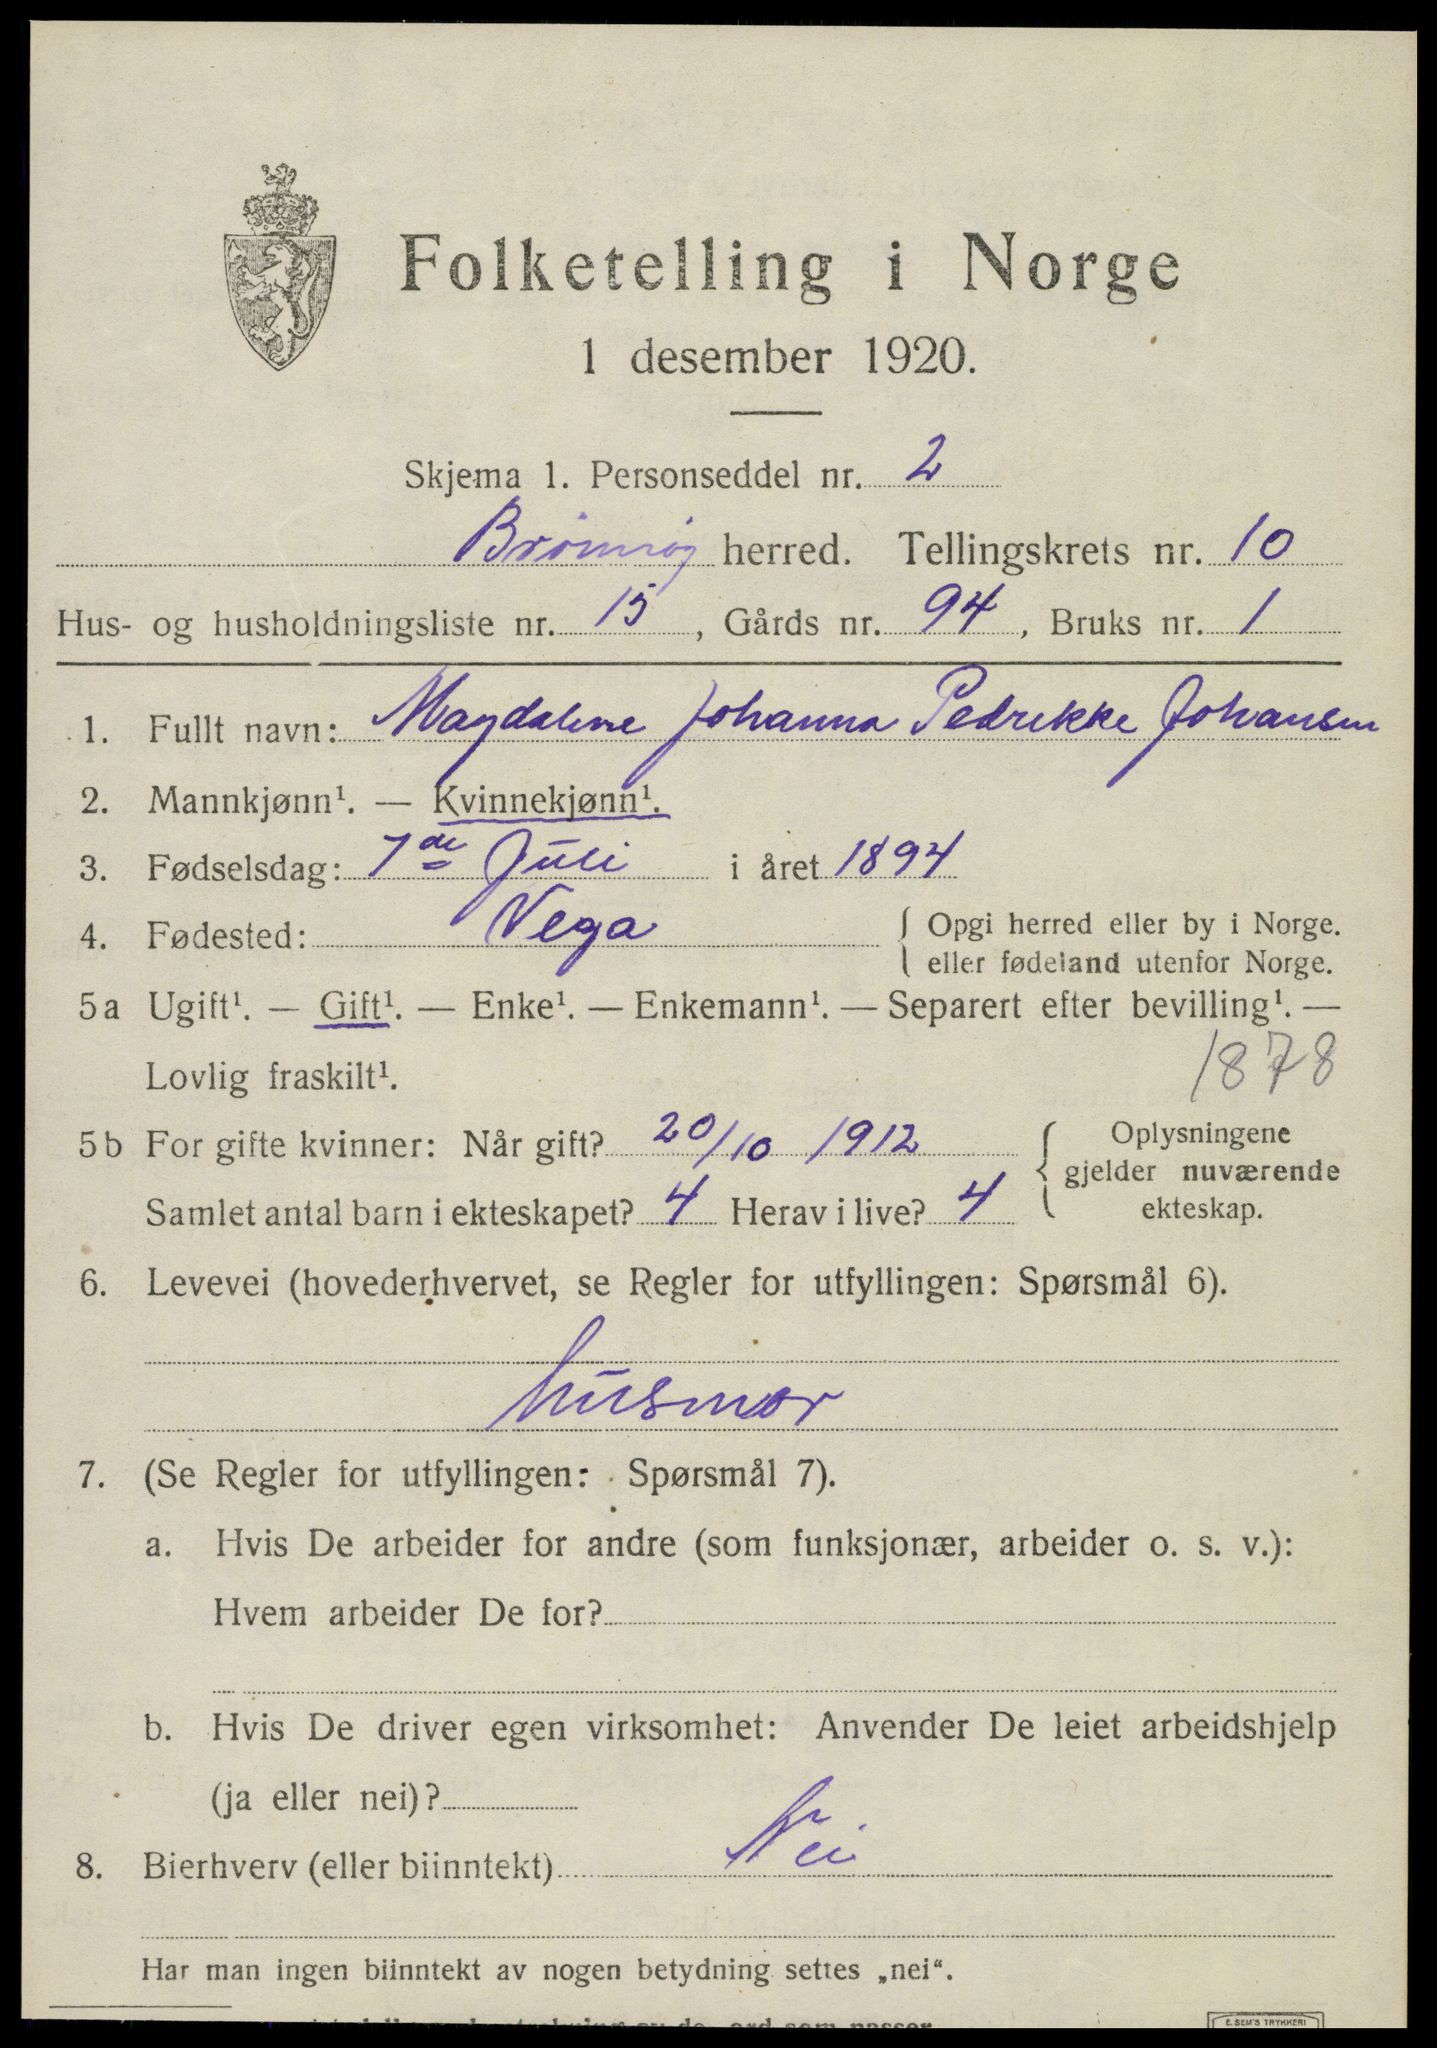 Folketelling i Norge
1 desember 1920.
Skjema 1. Personseddel nr. 2
Brønnøy herred. Tellingskrets nr. 10
Hus- og husholdningsliste nr. 15, Gårds nr. 94, Bruks nr. 1
1. Fullt navn: Magdalene Johanna Pedrikke Johansen
2. Mannkjønn¹. — Kvinnekjønn¹.
3. Fødselsdag: 7de Juli i året 1894
4. Fødested: Vega { Opgi herred eller by i Norge.
eller fødeland utenfor Norge.
5a Ugift¹. — Gift¹. — Enke¹. — Enkemann¹. — Separert efter bevilling¹. —
Lovlig fraskilt¹. 1878
5b For gifte kvinner: Når gift? 20/10 1912 { Oplysningene
gjelder nuværende
Samlet antal barn i ekteskapet? 4 Herav i live? 4 ekteskap.
6. Levevei (hovederhvervet, se Regler for utfyllingen: Spørsmål 6).
husmor
7. (Se Regler for utfyllingen: Spørsmål 7).
a. Hvis De arbeider for andre (som funksjonær, arbeider o. s. v.):
Hvem arbeider De for?
b. Hvis De driver egen virksomhet: Anvender De leiet arbeidshjelp
(ja eller nei)?
8. Bierhverv (eller biinntekt) Nei
Har man ingen biinntekt av nogen betydning settes „nei“.
E. SEM'S TRYKKERI